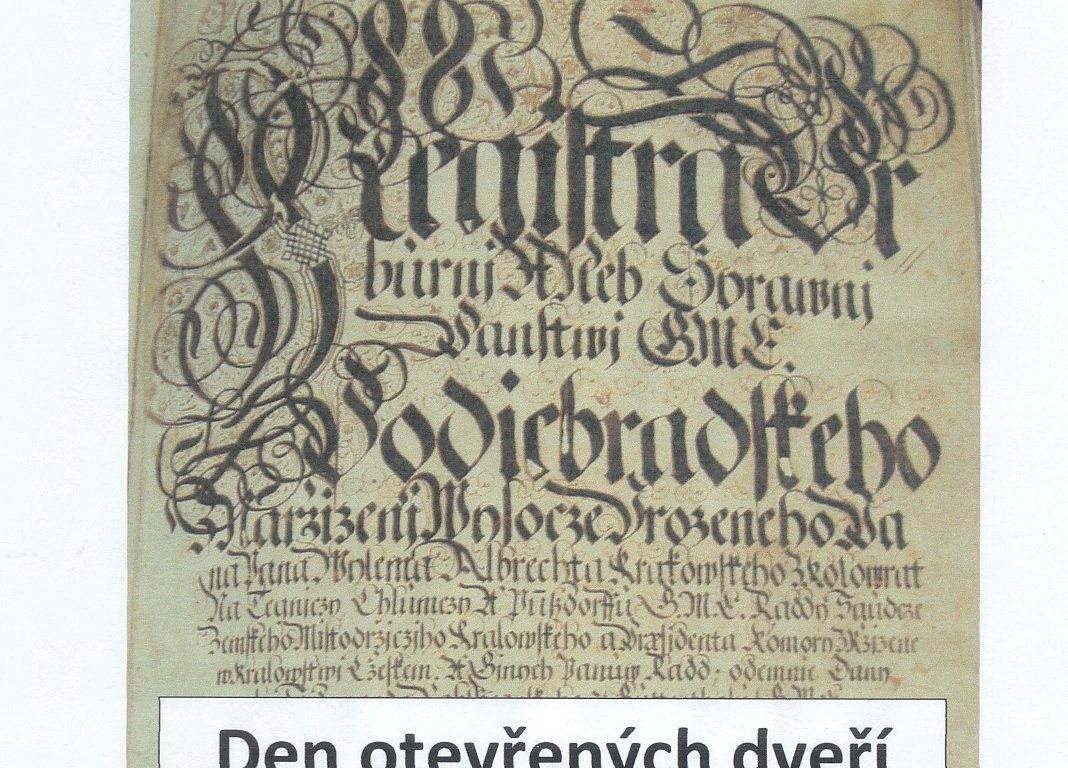 Registra Vr
búrnj A Neb Sprawnj
Panstwj GMC.
Podiebradskeho
Narzizenij Wysocze Vrozeneho Pa
na Pana Wylema Albrechta Krakowskeho Zkolowrat
Na Tegniczy Chlumczy A G M C. Raddy Saudcze
Zemskeho Mistodrziczjho Kralowskeho a Præsidenta Komory Zrzizene
w Kralowstwj Czeskem. A Ginych Panuw Radd. odemne Dany
Den otevřených dveří